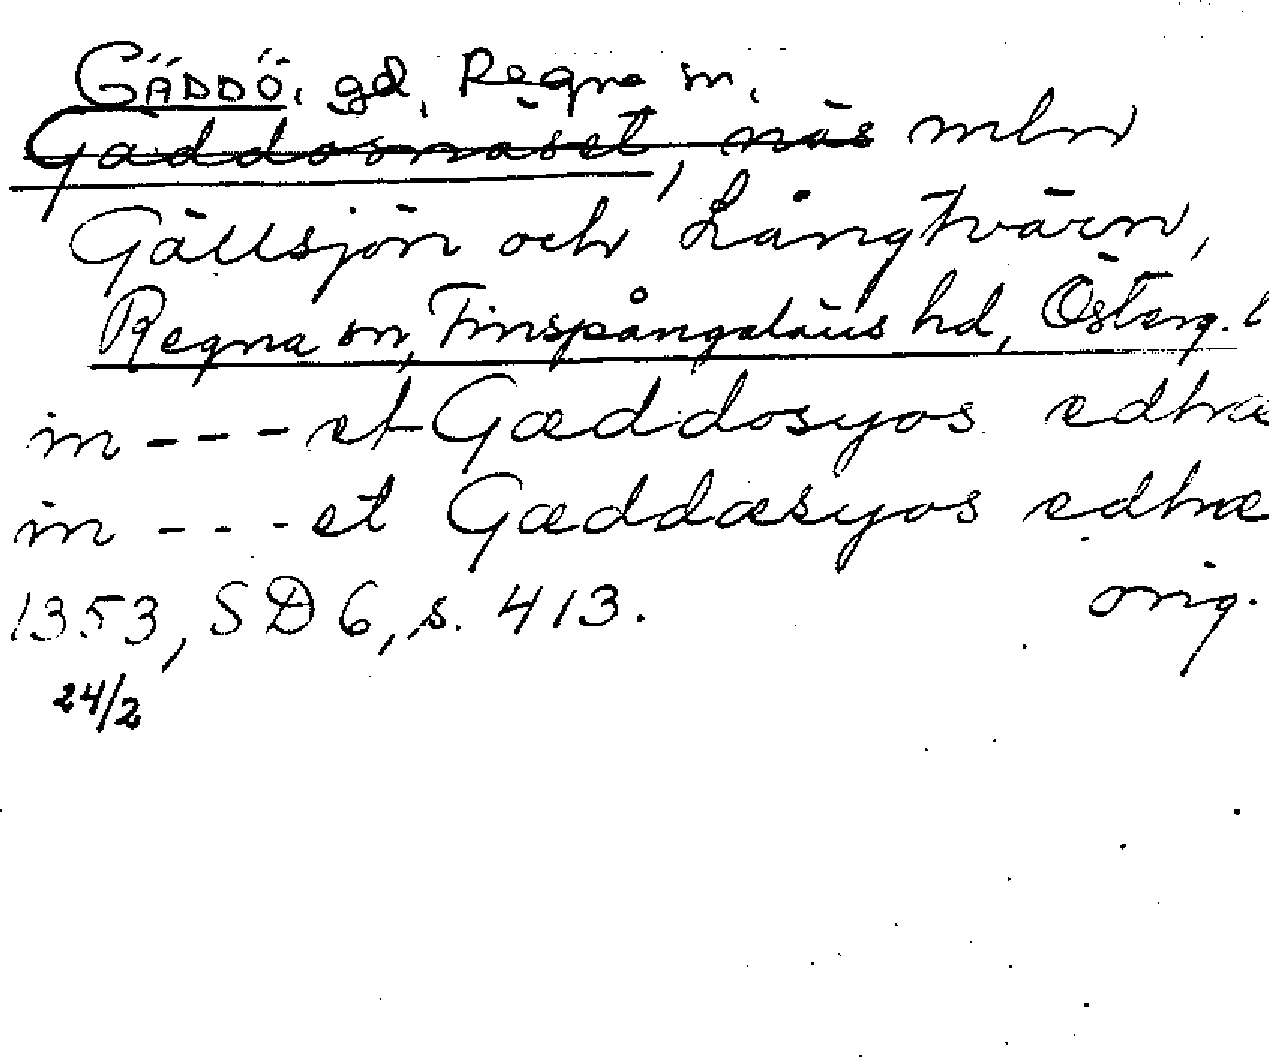 GÄDDÖ, gd, Regna sn.
Gäddösnäset, näs mln
Gällsjön och Långtvärn,
Regna sn, Finspångaläns hd, Österg. l
in --- et Gæddosyos ædhræ
in --- et Gæddæsyos ædhræ
1353, SD 6, s. 413. orig.
24/2